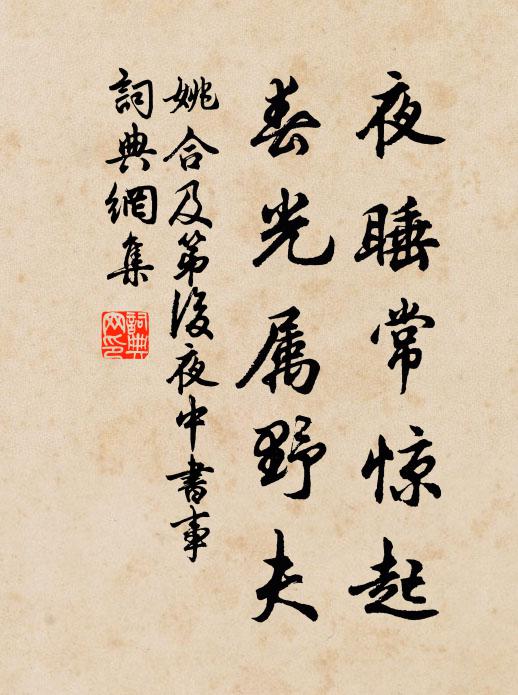 夜睡常惊起
春光属野夫
姚合及第後夜中書事
詞典網集
詞典网印